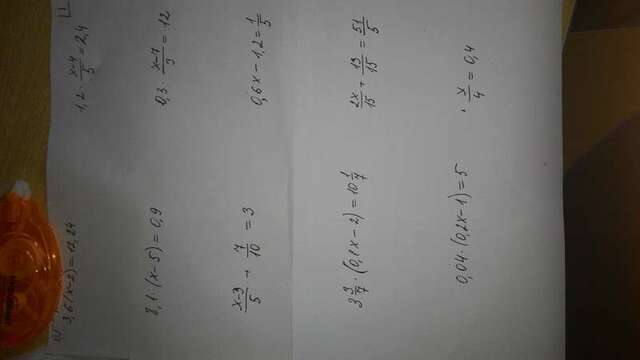 3,6(x-2)=12,24
1,2 · (x-4)/5 = 2,4
8,1 · (x-5) = 0,9
0,3 · (x-7)/3 = 12
(x-3)/5 + 7/10 = 3
0,6x - 1,2 = 1/5
3 3/7 · (0,1x - 2) = 10 1/7
2x/15 + 13/15 = 51/5
0,04 · (0,2x-1) = 5
x/4 = 0,4